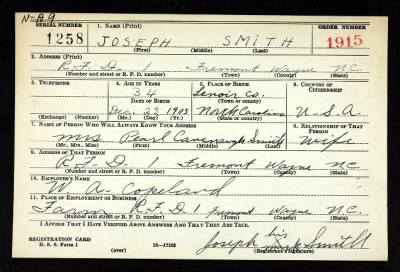 N-89
SERIAL NUMBER 1. NAME (Print) ORDER NUMBER
1258 JOSEPH SMITH 1915
(First) (Middle) (Last)
2. ADDRESS (Print)
R.F.D. 1 Fremont Wayne N.C.
(Number and street or R. F. D. number) (Town) (County) (State)
3. TELEPHONE 4. AGE IN YEARS 5. PLACE OF BIRTH 6. COUNTRY OF CITIZENSHIP
34 Lenoir Co.
DATE OF BIRTH (Town or county)
Dec. 29 1905 North Carolina U.S.A.
(Exchange) (Number) (Mo.) (Day) (Yr.) (State or country)
7. NAME OF PERSON WHO WILL ALWAYS KNOW YOUR ADDRESS 8. RELATIONSHIP OF THAT PERSON
Mrs Pearl Cavenaugh Smith Wife
(Mr., Mrs., Miss) (First) (Middle) (Last)
9. ADDRESS OF THAT PERSON
R.F.D. 1 Fremont Wayne N.C.
(Number and street or R. F. D. number) (Town) (County) (State)
10. EMPLOYER'S NAME
W. A. Copeland
11. PLACE OF EMPLOYMENT OR BUSINESS
Farm R.F.D. 1 Fremont Wayne N.C.
(Number and street or R. F. D. number) (Town) (County) (State)
I AFFIRM THAT I HAVE VERIFIED ABOVE ANSWERS AND THAT THEY ARE TRUE.
REGISTRATION CARD
D. S. S. Form 1 (over) 16—17105
Joseph his mark Smith
(Registrant's signature)